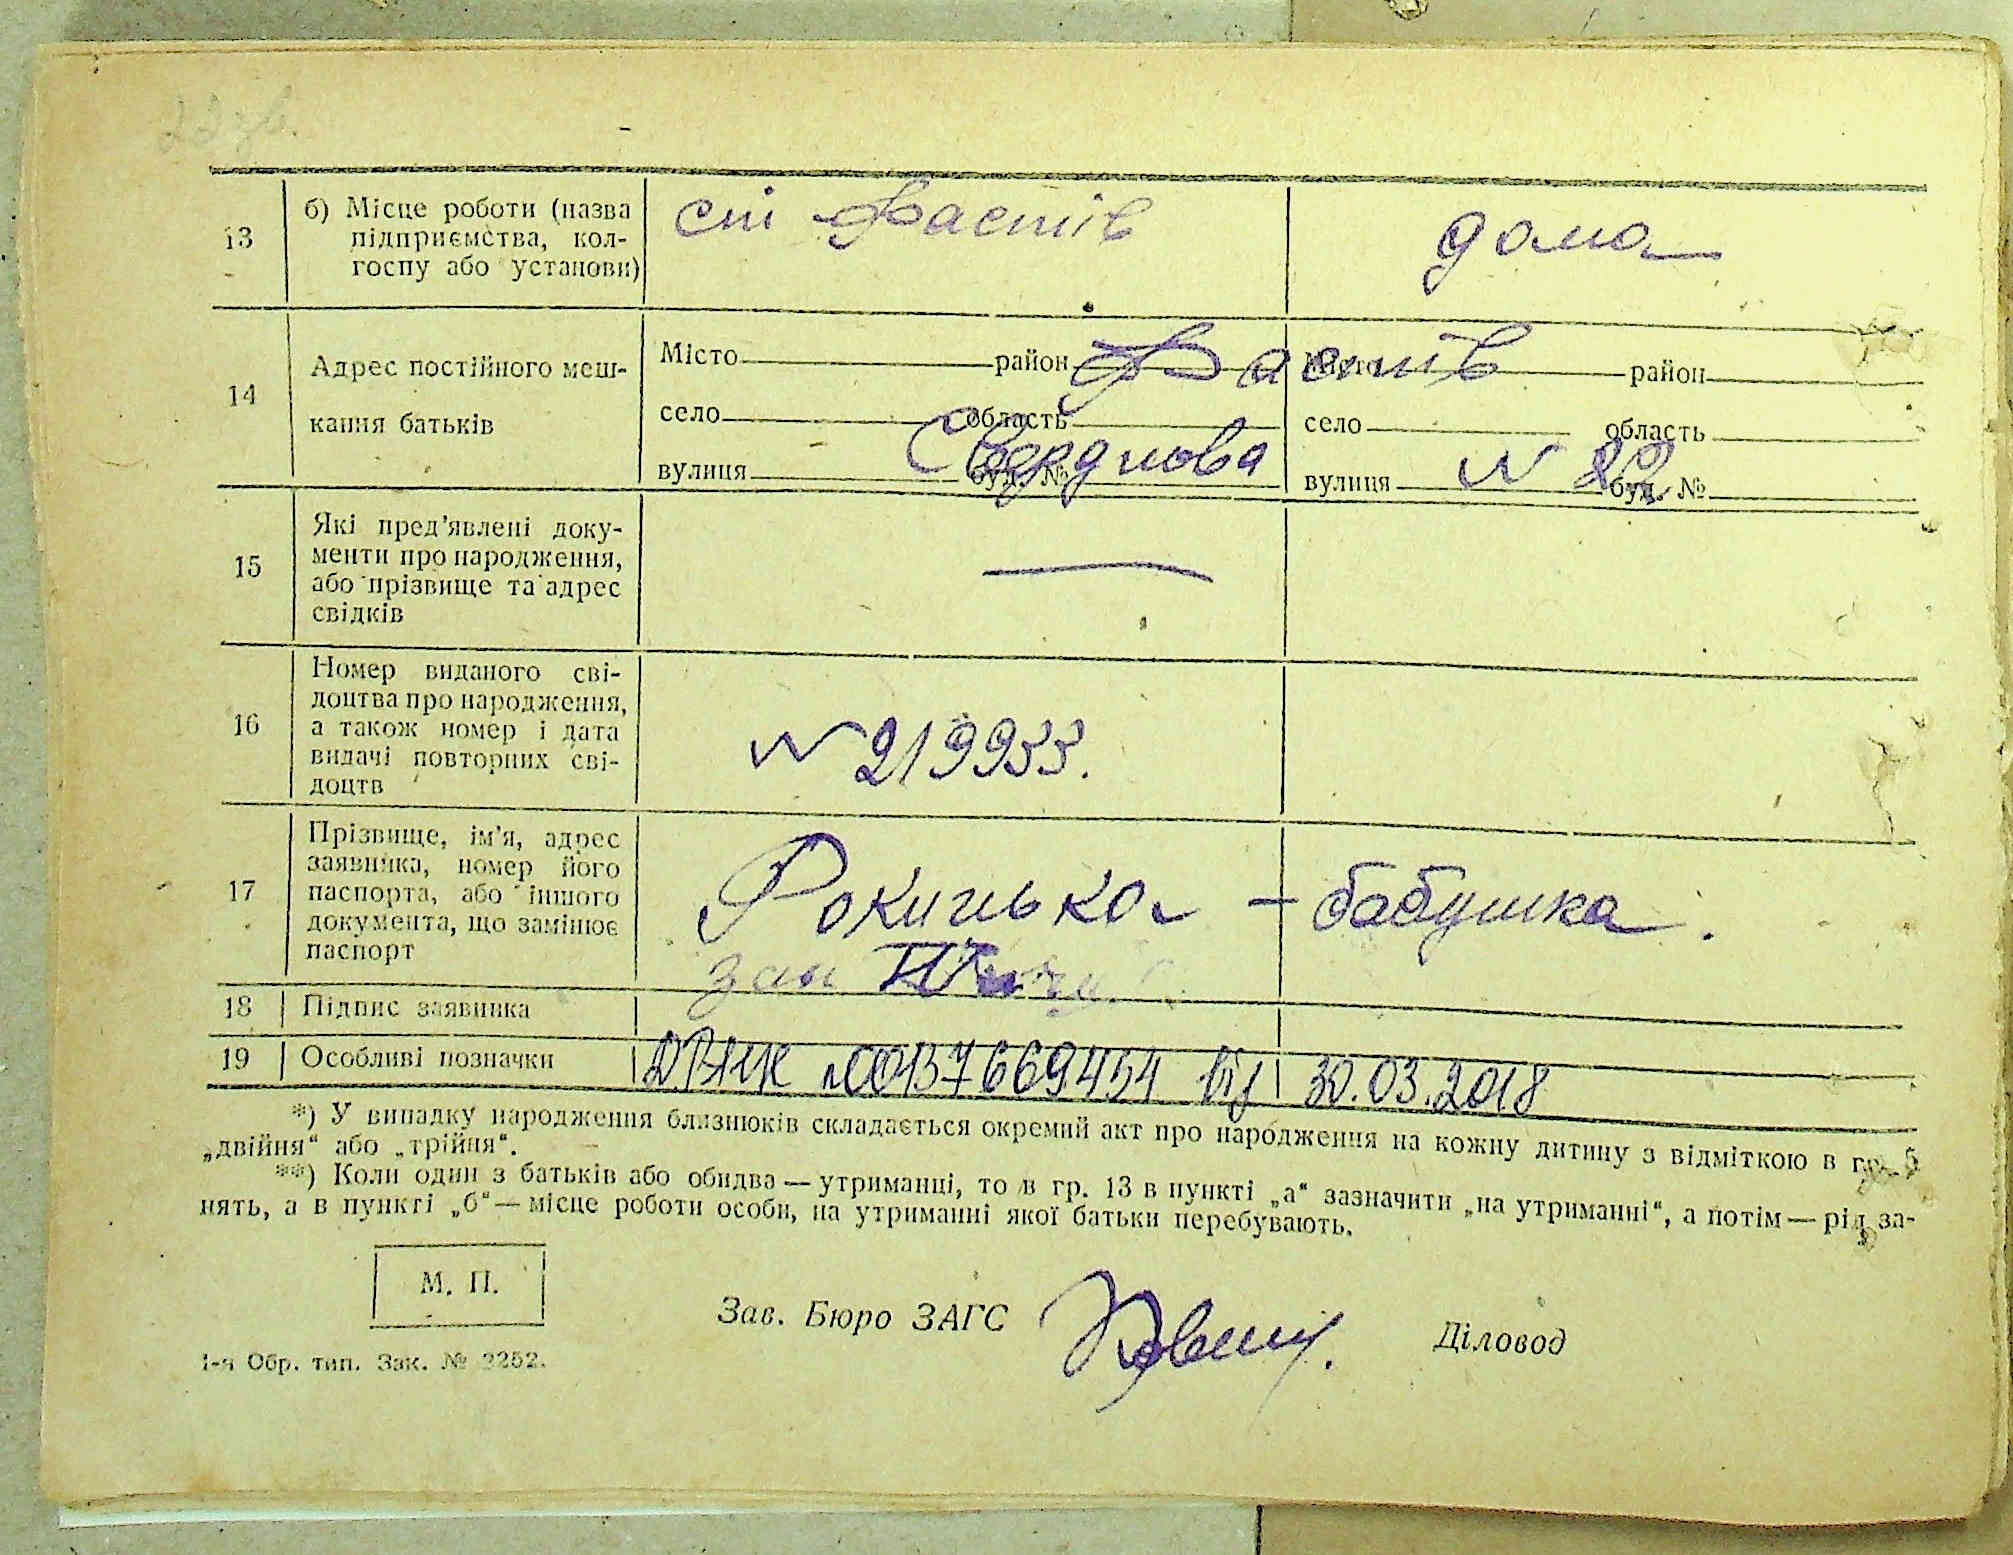 13
б) Місце роботи (назва
підприємства, кол-
госпу або установи)
ст Фастів
дома
14
Адрес постійного меш-
кання батьків
Місто район Фастів Місто район
село область село область
вулиця Свердлова буд. № вулиця N 22 буд. №
15
Які пред’явлені доку-
менти про народження,
або прізвище та адрес
свідків
—
16
Номер виданого сві-
доцтва про народження,
а також номер і дата
видачі повторних сві-
доцтв
N 219933.
17
Прізвище, ім’я, адрес
заявника, номер його
паспорта, або іншого
документа, що замінює
паспорт
Рокицька — бабушка.
18 Підпис заявника
19 Особливі позначки
№00137669454 від 30.03.2018
*) У випадку народження близнюків складається окремий акт про народження на кожну дитину з відміткою в гр. 5
„двійня“ або „трійня“.
**) Коли один з батьків або обидва — утриманці, то в гр. 13 в пункті „а“ зазначити „на утриманні“, а потім — рід за-
нять, а в пункті „б“ — місце роботи особи, на утриманні якої батьки перебувають.
М. П.
Зав. Бюро ЗАГС
Діловод
1-я Обр. тип. Зак. № 2252.